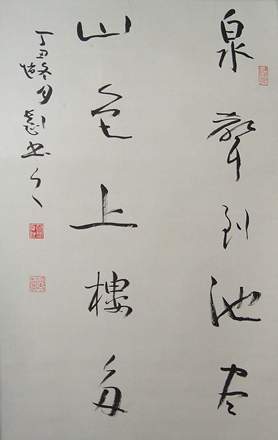 泉聲到池盡
山色上樓多
丁丑冬月